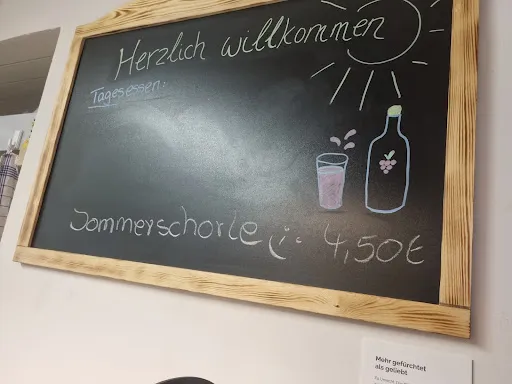 Herzlich willkommen
Tagesessen:
Sommerschorle (; 4,50€
Mehr gefürchtet
als geliebt